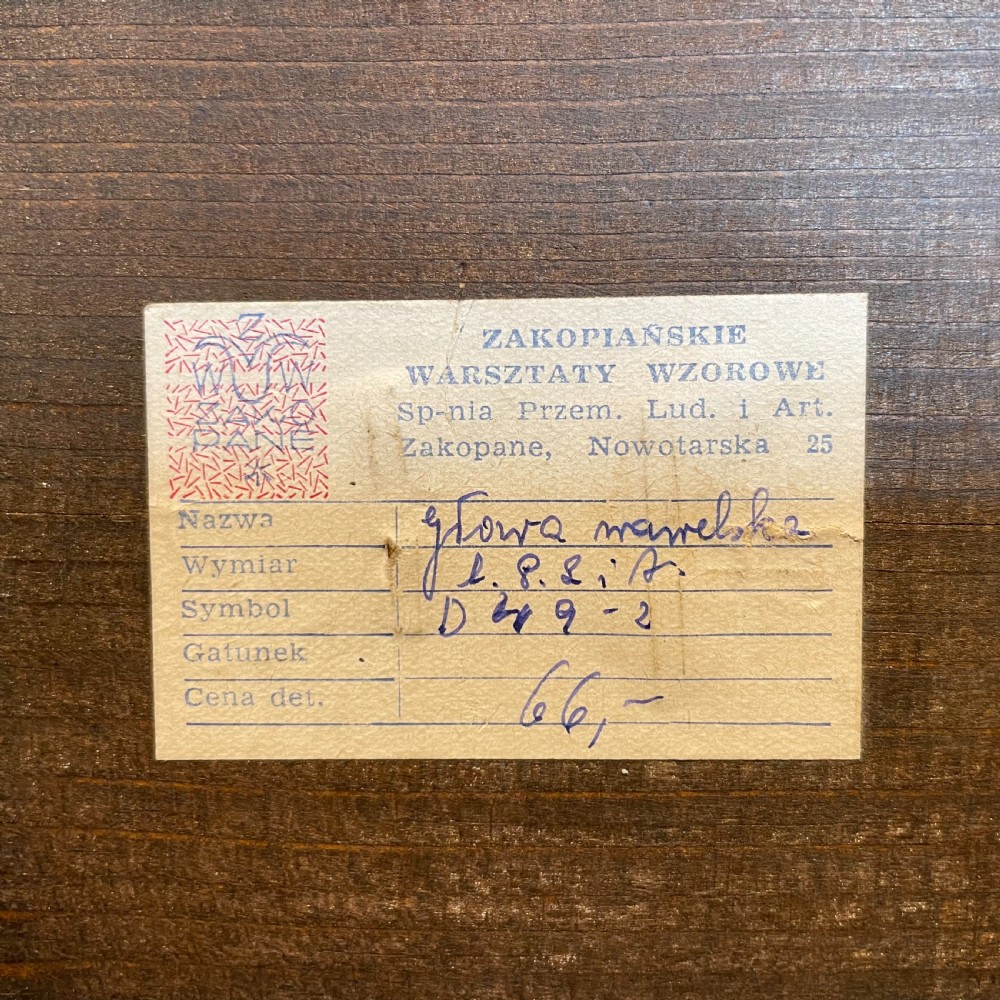 Z
W W
ZAKO
PANE
ZAKOPIAŃSKIE
WARSZTATY WZOROWE
Sp-nia Przem. Lud. i Art.
Zakopane, Nowotarska 25
Nazwa głowa wawelska
Wymiar
Symbol D 49-2
Gatunek
Cena det. 66,-